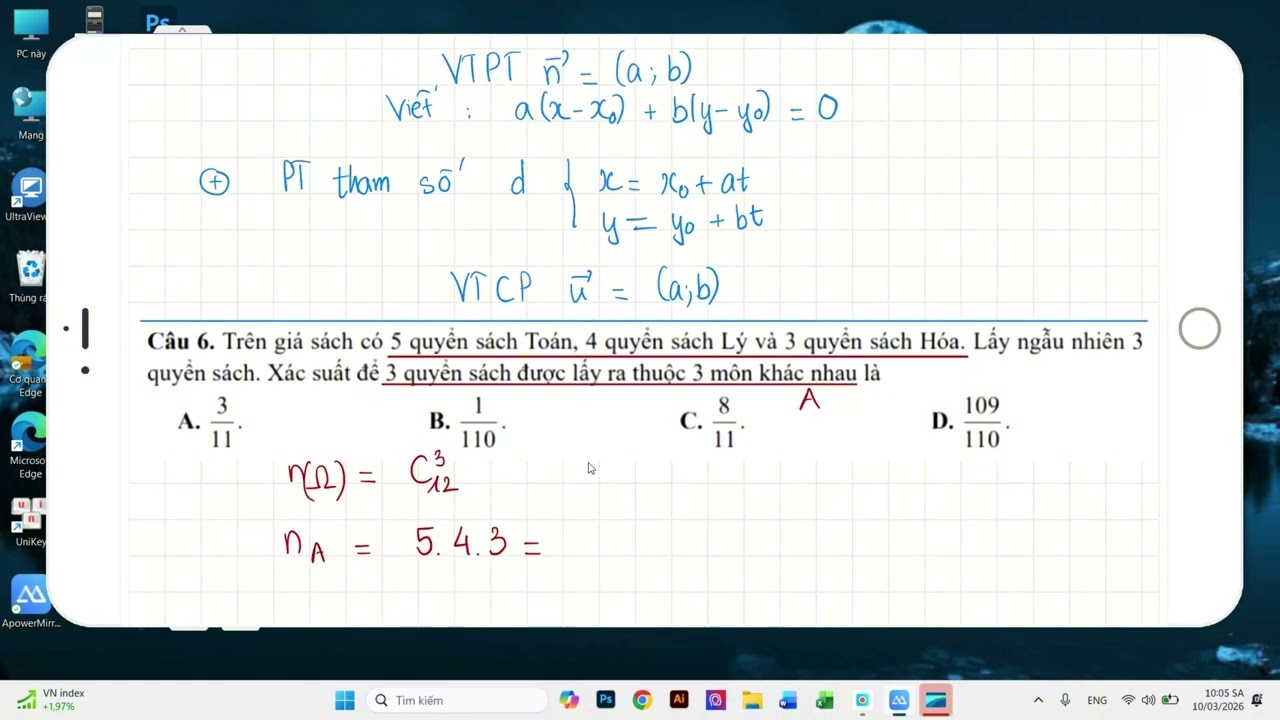 Ps
PC này
Mạng
UltraView
Thùng rá
Cơ quan
Edge
Microso
Edge
UniKey
ApowerMirr...
VTPT n⃗ = (a; b)
Viết : a(x-x₀) + b(y-y₀) = 0
⊕ PT tham số d { x = x₀ + at
y = y₀ + bt
VTCP u⃗ = (a;b)
Câu 6. Trên giá sách có 5 quyển sách Toán, 4 quyển sách Lý và 3 quyển sách Hóa. Lấy ngẫu nhiên 3
quyển sách. Xác suất để 3 quyển sách được lấy ra thuộc 3 môn khác nhau là
A
A. 3/11. B. 1/110. C. 8/11. D. 109/110.
n(Ω) = C³₁₂
n_A = 5.4.3 =
VN index
+1,97%
Tìm kiếm
Ps
Ai
ENG
10:05 SA
10/03/2026